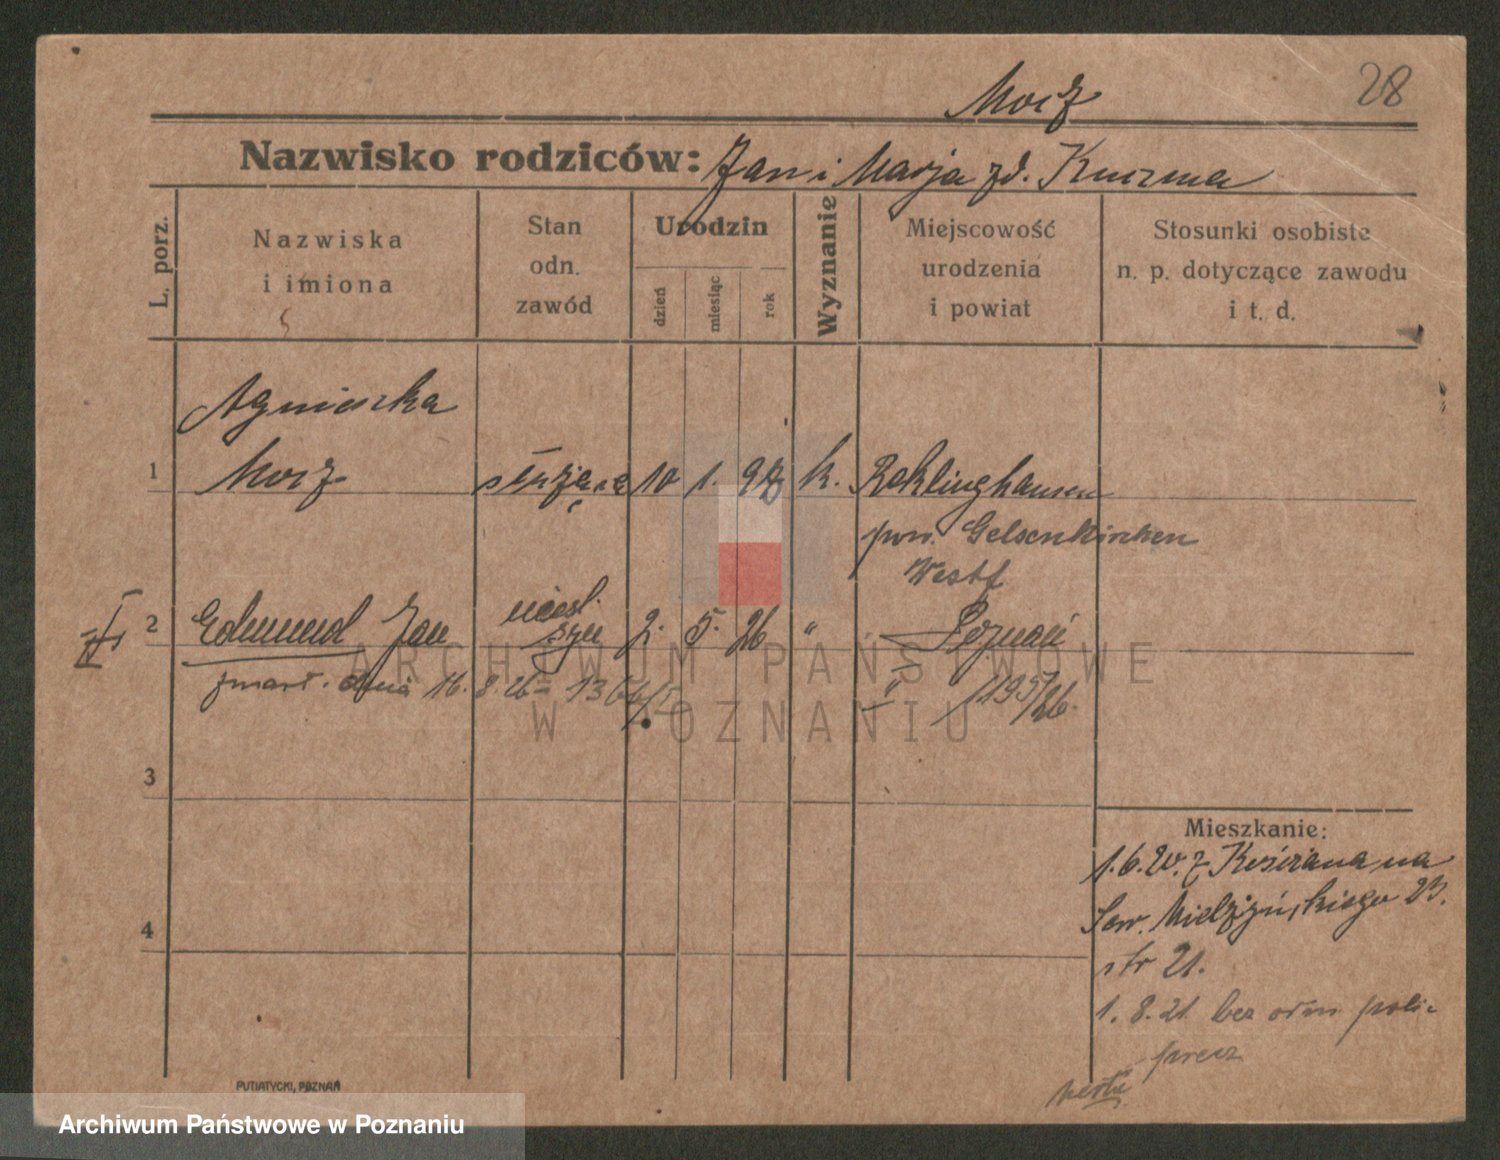 28
Morz
Nazwisko rodziców: Jan i Marja zd. Kuczma
L. porz.
Nazwiska
i imiona
Stan
odn.
zawód
Urodzin
dzień
miesiąc
rok
Wyznanie
Miejscowość
urodzenia
i powiat
Stosunki osobiste
n. p. dotyczące zawodu
i t. d.
Agnieszka
1 Morz służąca 10 1. 98 k. Reklinghausen
pow. Gelsenkirchen
Westf
2 Edmund Jan syn 2. 5. 26 " Poznań
zmarł. dnia 16. 8. 26 - " 1195/26.
3
4
Mieszkanie:
1. 6. 20. z
Sew. Mielżyńskiego 23.
str 21.
1. 8. 21 bez odm. poli-
precz
verte
PUTIATYCKI, POZNAŃ
ARCHIWUM PAŃSTWOWE
W POZNANIU
Archiwum Państwowe w Poznaniu